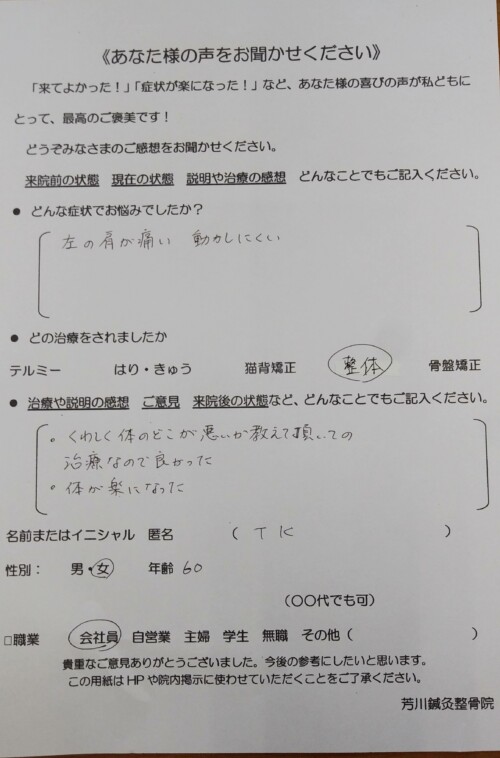 《あなた様の声をお聞かせください》
「来てよかった！」「症状が楽になった！」など、あなた様の喜びの声が私どもに
とって、最高のご褒美です！
どうぞみなさまのご感想をお聞かせください。
来院前の状態　現在の状態　説明や治療の感想　どんなことでもご記入ください。
● どんな症状でお悩みでしたか？
左の肩が痛い　動かしにくい
● どの治療をされましたか
テルミー　はり・きゅう　猫背矯正　整体　骨盤矯正
● 治療や説明の感想　ご意見　来院後の状態など、どんなことでもご記入ください。
・くわしく体のどこが悪いか教えて頂いての
治療なので良かった
・体が楽になった
名前またはイニシャル　匿名　（ T K ）
性別：　男・女　年齢 60
（〇〇代でも可）
□職業　会社員　自営業　主婦　学生　無職　その他（　）
貴重なご意見ありがとうございました。今後の参考にしたいと思います。
この用紙はＨＰや院内掲示に使わせていただくことをご了承ください。
芳川鍼灸整骨院